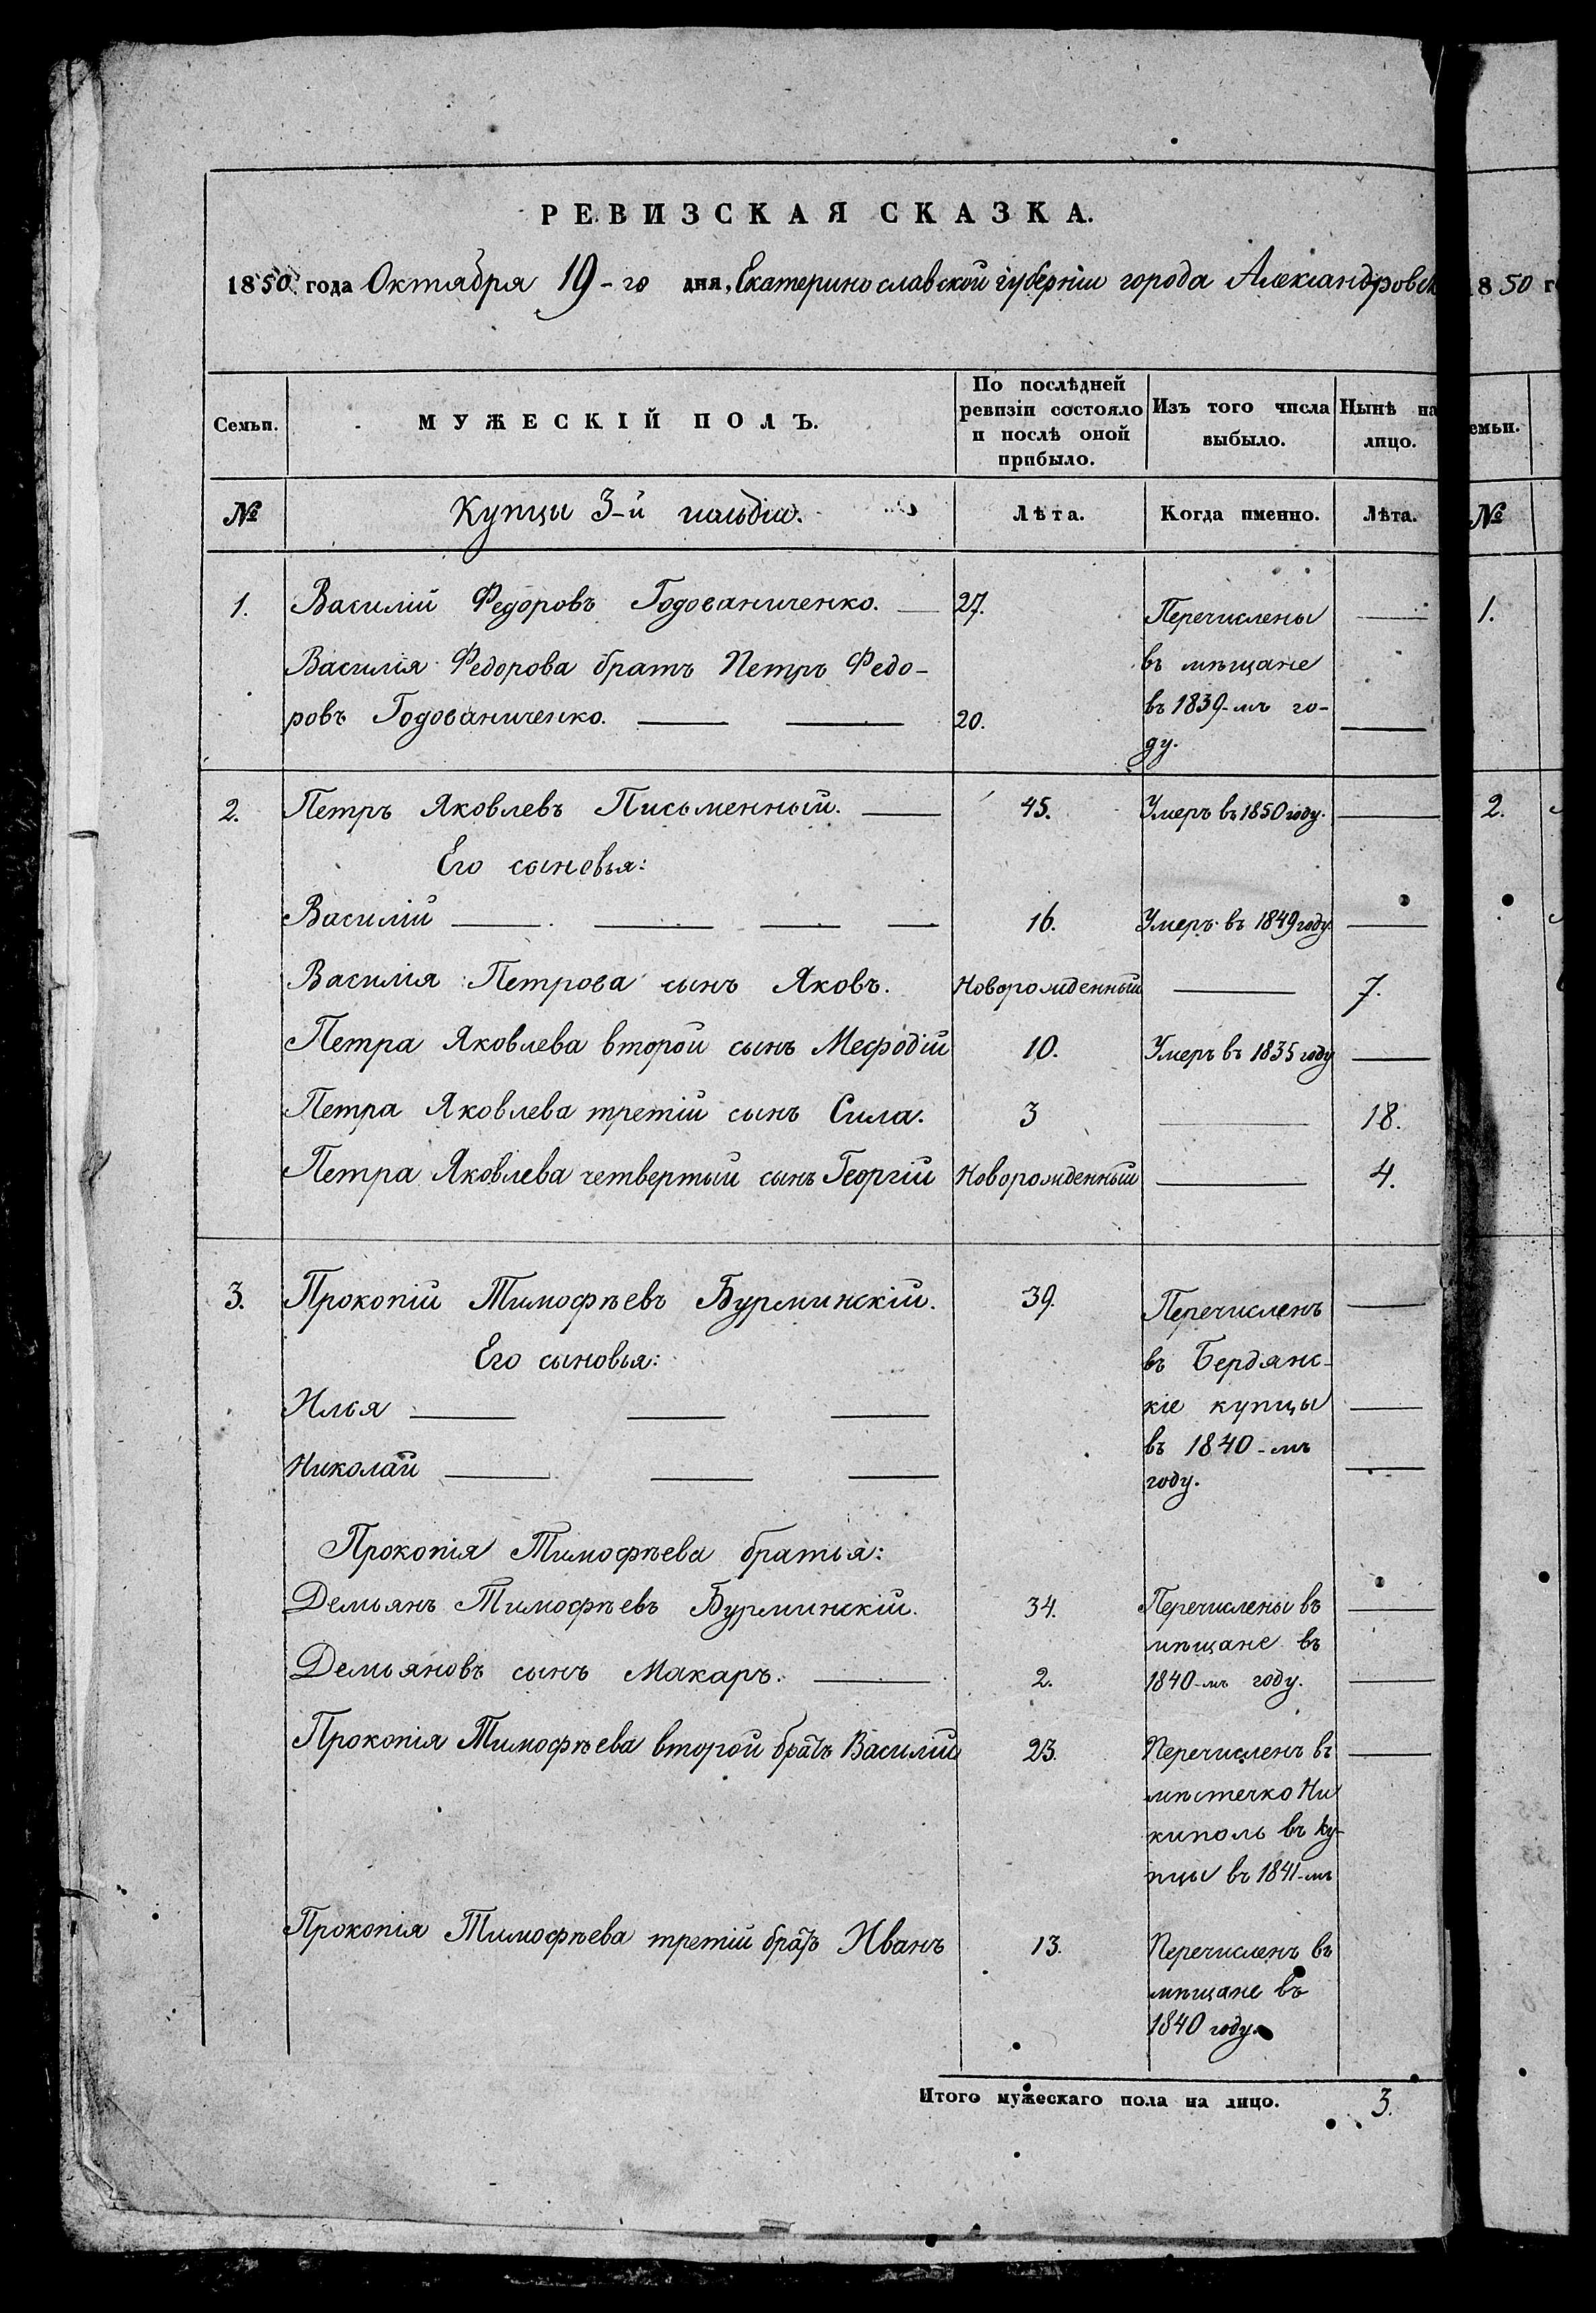 РЕВИЗСКАЯ СКАЗКА.
1850 года Октября 19-го дня, Екатеринославской губернiи города Александровск
Семьи. МУЖЕСКIЙ ПОЛЪ. По послѣдней ревизiи состояло и послѣ оной прибыло. Изъ того числа выбыло. Нынѣ на лицо.
№ Купцы 3-й гильдiи. Лѣта. Когда именно. Лѣта.
1. Василiй Федоровъ Годованиченко. — 27. Перечислены —
Василiя Федорова братъ Петръ Федо- въ мѣщане
ровъ Годованиченко. — — 20. въ 1839-мъ го- —
ду.
2. Петръ Яковлевъ Письменный. — 45. Умеръ въ 1850 году. —
Его сыновья:
Василiй — — — — 16. Умеръ въ 1849 году. —
Василiя Петрова сынъ Яковъ. Новорожденный — 7.
Петра Яковлева второй сынъ Мефодiй 10. Умеръ въ 1835 году —
Петра Яковлева третiй сынъ Сила. 3 — 18.
Петра Яковлева четвертый сынъ Георгiй Новорожденный — 4.
3. Прокопiй Тимофѣевъ Бурминскiй. 39. Перечисленъ —
Его сыновья: въ Бердянс-
Илья — — — кiе купцы —
Николай — — — въ 1840-мъ —
году.
Прокопiя Тимофѣева братья:
Демьянъ Тимофѣевъ Бурминскiй. 34. Перечислены въ —
мѣщане въ
Демьяновъ сынъ Макаръ. — 2. 1840-мъ году. —
Прокопiя Тимофѣева второй братъ Василiй 23. Перечисленъ въ —
мѣстечко Ни
киполь въ ку-
пцы въ 1841-мъ
Прокопiя Тимофѣева третiй братъ Иванъ 13. Перечисленъ въ
мѣщане въ
1840 году.
Итого мужескаго пола на лицо. 3.
1850 г
емьи.
№
1.
2.